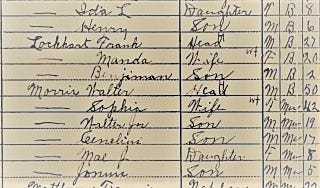 — Ida L Daughter F B 8
— Henry Son M B 6
Lockhart Frank Head M B 27
— Manda wf Wife F B 20
— Benjiman Son M B 2
Morris Walter Head M B 50
— Sophia wf Wife F Mu 42
— Walter Jr Son M Mu 19
— Son M Mu 17
— Mae J Daughter F Mu 8
— Son M Mu 5